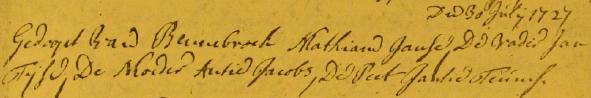 Den 30 July 1727
Gedoopt van Bennebroek Mathias Janse, De vader Jan
Tijse, De Moeder Antie Jacobs, De Peet Jantie Teunis.